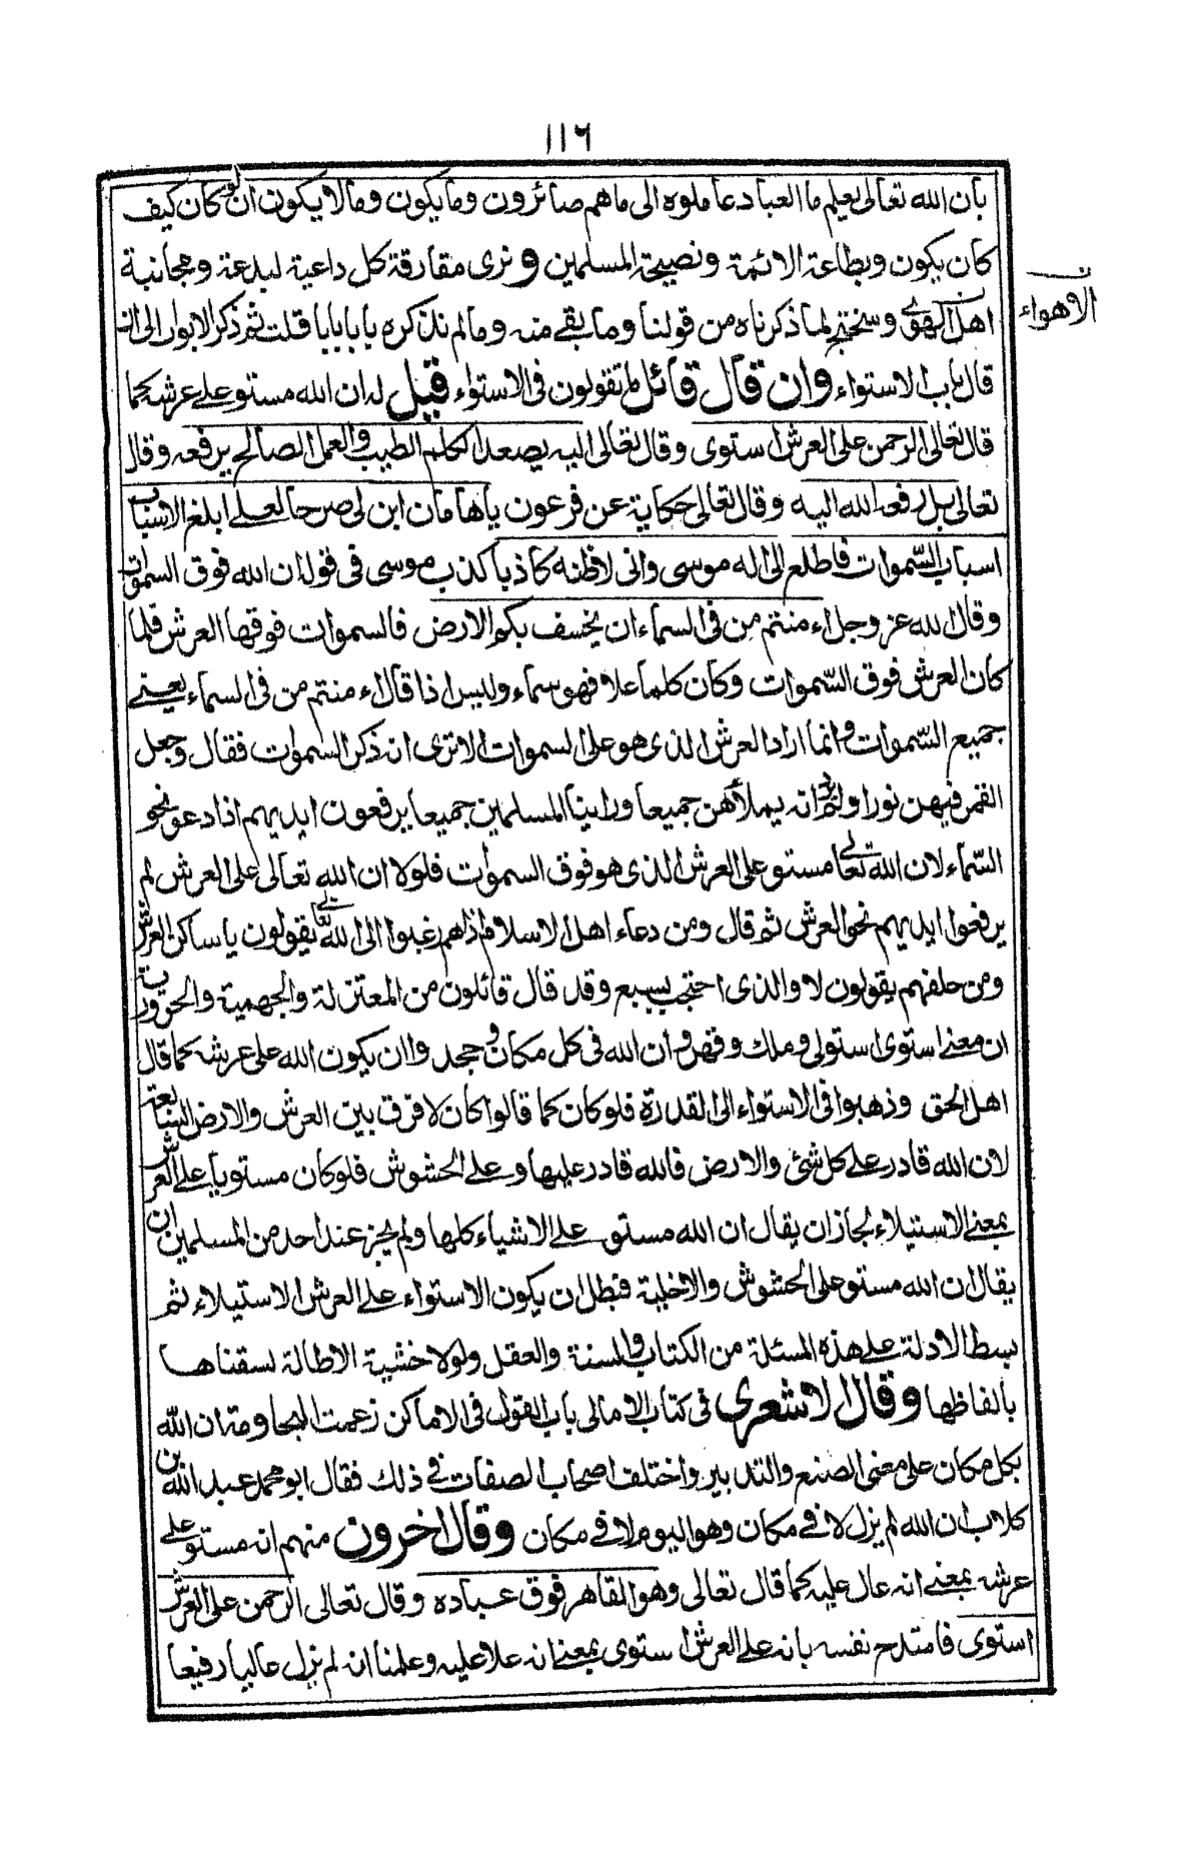 ١١٦
بان الله تعالى يعلم ما العباد عاملوه الى ما هم صائرون وما يكون وما لا يكون ان لو كان كيف
كان يكون وبطاعة الائمة ونصيحة المسلمين ونرى مفارقة كل داعية لبدعة ومجانبة
الاهواء
اهل وسنحتج لما ذكرناه من قولنا وما بقى منه وما لم نذكره بابا بابا قلت ثم ذكر الابواب الى ان
قال باب الاستواء وان قال قائل ما تقولون فى الاستواء قيل له ان الله مستو على عرشه كما
قال تعالى الرحمن على العرش استوى وقال تعالى اليه يصعد الكلم الطيب والعمل الصالح يرفعه وقال
تعالى بل رفعه الله اليه وقال تعالى حكاية عن فرعون ياهامان ابن لى صرحا لعلى ابلغ الاسباب
اسباب السموات فاطلع الى اله موسى وانى لاظنه كاذبا كذب موسى فى قوله ان الله فوق السموات
وقال الله عز وجل اءمنتم من فى السماء ان يخسف بكم الارض فالسموات فوقها العرش فلما
كان العرش فوق السموات وكان كلما علا فهو سماء وليس اذا قال اءمنتم من فى السماء يعنى
جميع السموات وانما اراد العرش الذى هو على السموات الا ترى انه ذكر السموات فقال وجعل
القمر فيهن نورا ولم يرد انه يملأهن جميعا وراينا المسلمين جميعا يرفعون ايديهم اذا دعو نحو
السماء لان الله تعالى مستو على العرش الذى هو فوق السموات فلولا ان الله تعالى على العرش لم
يرفعوا ايديهم نحو العرش ثم قال ومن دعاء اهل الاسلام اذا هم رغبوا الى الله يقولون ياساكن العرش
ومن حلفهم يقولون لا والذى احتجب بسبع وقد قال قائلون من المعتزلة والجهمية والحرورية
ان معنى استوى استولى وملك وقهر وان الله فى كل مكان وجحدوا ان يكون الله على عرشه كما قال
اهل الحق وذهبوا فى الاستواء الى القدرة فلو كان كما قالوا كان لا فرق بين العرش والارض السابعة
لان الله قادر على كل شئ والارض فالله قادر عليها وعلى الحشوش فلو كان مستويا على العرش
بمعنى الاستيلاء لجاز ان يقال ان الله مستو على الاشياء كلها ولم يجز عند احد من المسلمين ان
يقال ان الله مستو على الحشوش والاخلية فبطل ان يكون الاستواء على العرش الاستيلاء ثم
بسط الادلة على هذه المسئلة من الكتاب والسنة والعقل ولولا خشية الاطالة لسقناها
بالفاظها وقال الاشعرى فى كتاب الامالى باب القول فى الاماكن زعمت النجاومة ان الله
بكل مكان على معنى الصنع والتدبير واختلف اصحاب الصفات فى ذلك فقال ابو محمد عبد الله بن
كلاب ان الله لم يزل لا فى مكان وهو اليوم لا فى مكان وقال اخرون منهم انه مستو على
عرشه بمعنى انه عال عليه كما قال تعالى وهو القاهر فوق عباده وقال تعالى الرحمن على العرش
استوى فامتدح نفسه بانه على العرش استوى بمعنى انه علا عليه وعلمنا انه لم يزل عاليا رفيعا